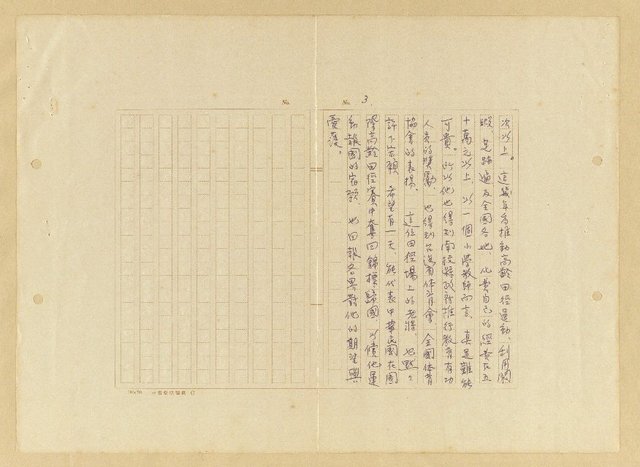 No.
No. 3
次以上。這幾年為推動高齡田徑運動，利用閒
暇，足跡遍及全國各地，花費自己的經費在五
十萬元以上，以一個小學教師而言，真是難能
可貴。所以他也得到南投縣政府推行教育有功
人員的獎勵，也得到台灣省體育會、全國體育
協會的表揚，這位田徑場上的老將，也默默
許下宏願，希望有一天，能代表中華民國在國
際高齡田徑賽中奪回錦標歸國，以償他是
為報國的宿願，也回報各界對他的期望與
愛護。